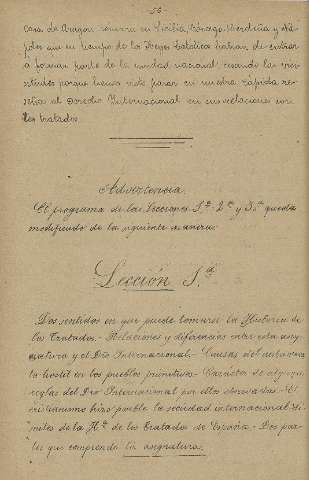 56
casa de Aragon reinara en Sicilia, Córcega, Cerdeña y Ná-
poles que en tiempo de los Reyes Católicos habian de entrar
a formar parte de la unidad nacional, creando las
porque hemos visto pasar en nuestra rápida re-
seña al Derecho Internacional en sus relaciones con
los tratados.
Advertencia
El programa de las Lecciones 1ª 2ª y 3ª queda
modificado de la siguiente manera:
Lección 1ª
Dos sentidos en que puede tomarse la Historia de
los Tratados.- Relaciones y diferencias entre esta asig-
natura y el Dro Internacional.- Causas del
hostil en los pueblos primitivos.- Caracter de algunas
reglas del Dro Internacional por ellos observadas.- El
cristianismo hizo posible la sociedad internacional. Li-
mites de la Hª de los Tratados de España.- Dos par-
tes que comprende la asignatura.